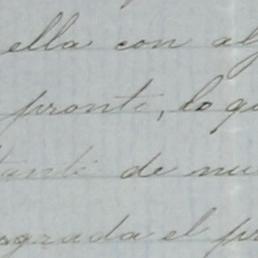 ella con al
pronto, lo qu
tante de nu
agrada el pr